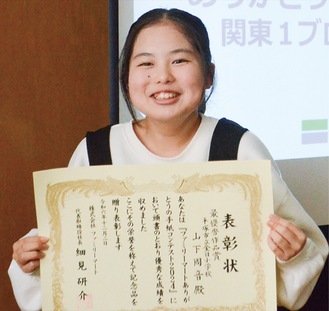 ありがとう
関東1ブロ
表彰状
最優秀作品賞
山下 周音 殿
あなたは『ファミリーマートありが
とうの手紙コンテスト2024』に
おいて頭書のとおり優秀な成績を
収めました
ここにその栄誉を称えて記念品を
贈り表彰します
令和六年十二月
株式会社ファミリーマート
代表取締役社長 細見 研介